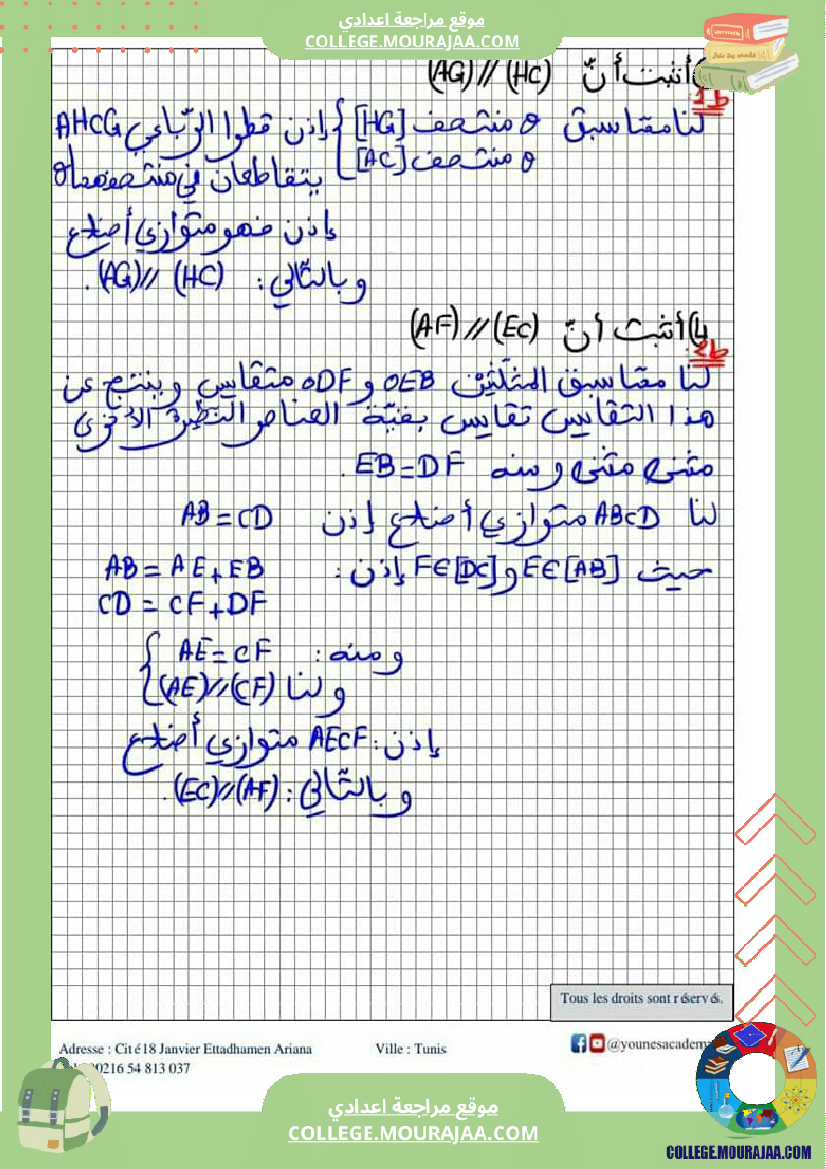 موقع مراجعة اعدادي
COLLEGE.MOURAJAA.COM
أثبت أنّ (AG) // (HC)
لنا مما سبق O منتصف [HG] إذن قطرا الرّباعي AHCG
O منتصف [AC] يتقاطعان في منتصفهما O
إذن فهو متوازي أضلاع
وبالتّالي: (AG) // (HC).
4) أثبت أنّ (AF) // (EC)
لنا مما سبق المثلّثين OEB و ODF متقايس وينتج عن
هذا التقايس تقايس بقيّة العناصر النظيرة الأخرى
مثنى مثنى ومنه EB = DF.
لنا ABCD متوازي أضلاع إذن AB = CD
حيث E∈[AB] و F∈[DC] إذن: AB = AE + EB
CD = CF + DF
ومنه: AE = CF
ولنا (AE) // (CF)
إذن: AECF متوازي أضلاع
وبالتّالي: (EC) // (AF).
Tous les droits sont réservés.
Adresse : Cité 18 Janvier Ettadhamen Ariana Ville : Tunis @younesacadem
0216 54 813 037
موقع مراجعة اعدادي
COLLEGE.MOURAJAA.COM
COLLEGE.MOURAJAA.COM